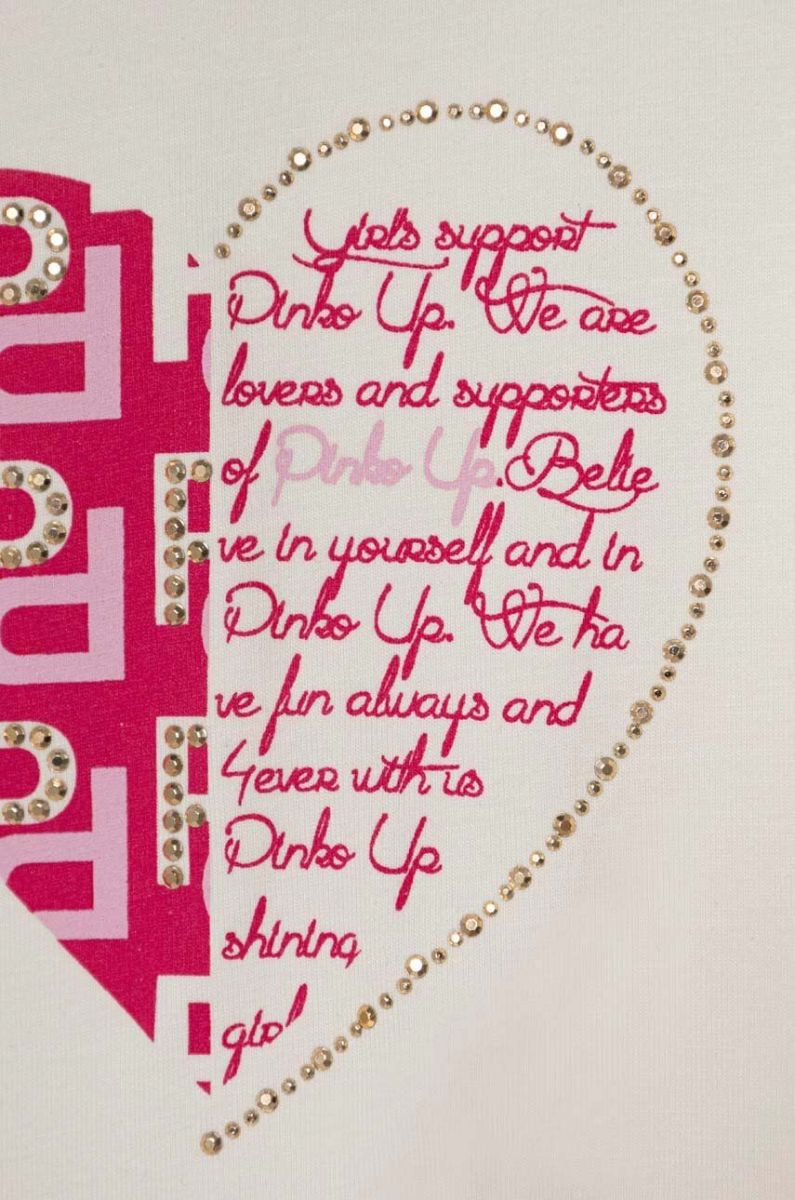 Girls support
Pinko Up. We are
lovers and supporters
of Pinko Up. Belie
ve in yourself and in
Pinko Up. We ha
ve fun always and
4ever with us
Pinko Up
shining
girl